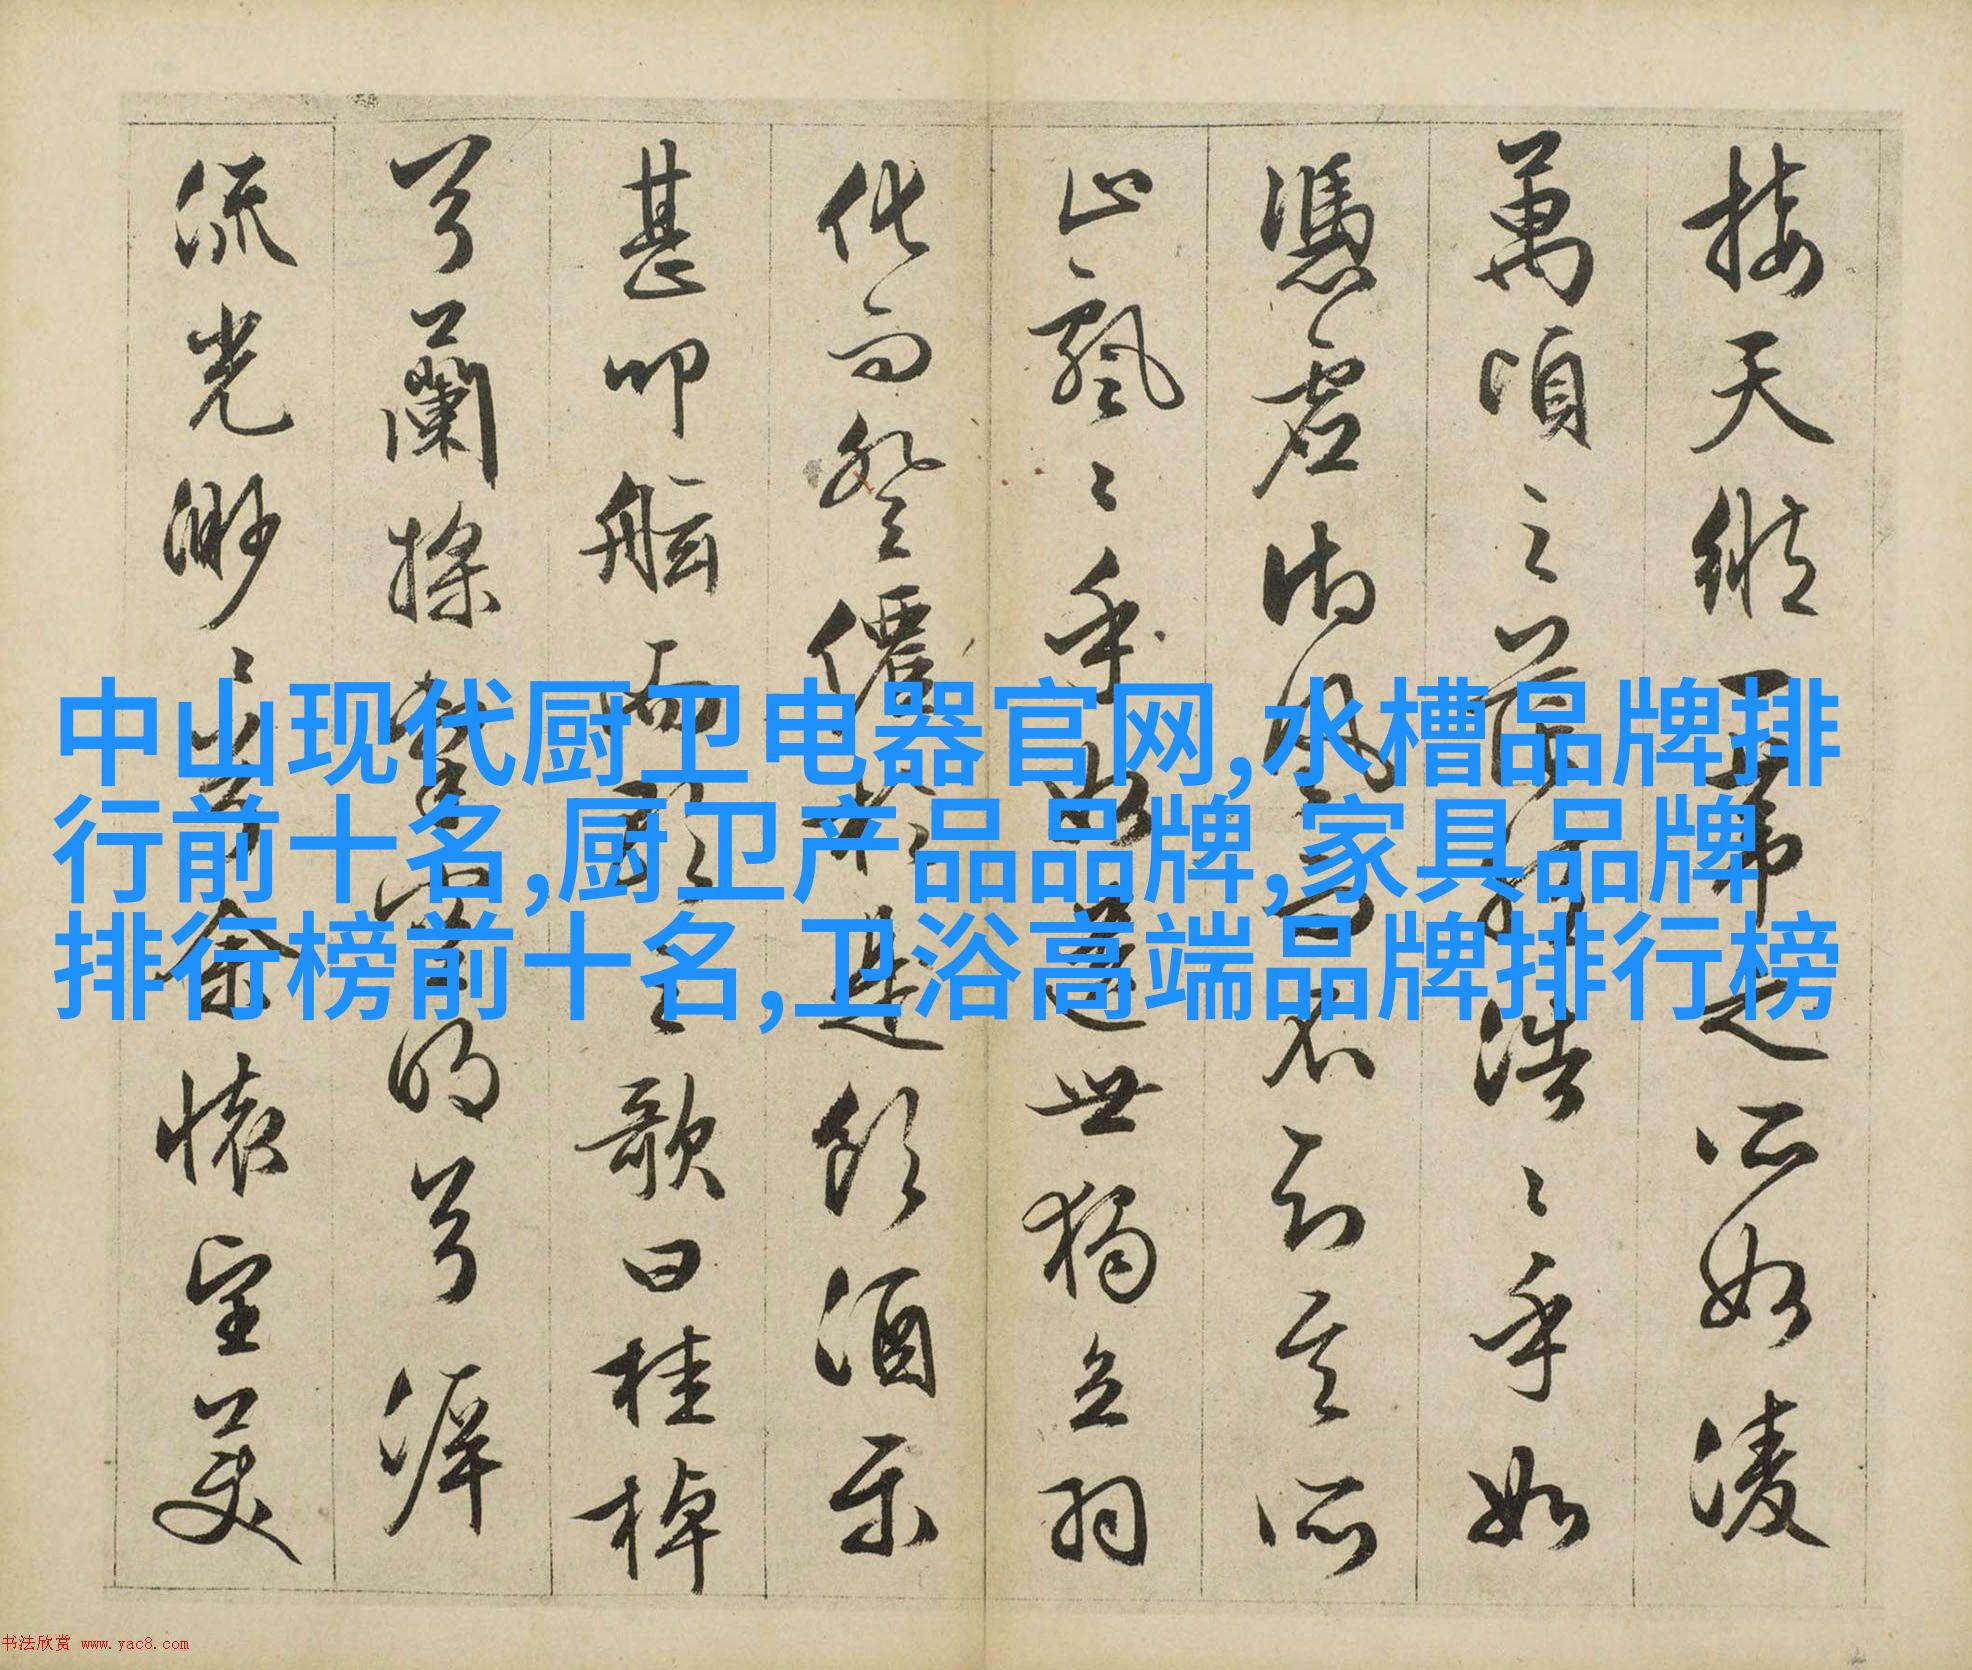 接天縱一葦之所如凌
萬頃之茫然浩〻乎如
憑虛御風而不知其所
止飄〻乎如遺世獨立羽
化而登僊於是飲酒樂
甚叩舷而歌之歌曰桂棹
兮蘭槳擊空明兮泝
流光渺〻兮余懷望美
中山现代厨卫电器官网,水槽品牌排
行前十名,厨卫产品品牌,家具品牌
排行榜前十名,卫浴高端品牌排行榜
书法欣赏 www.yac8.com